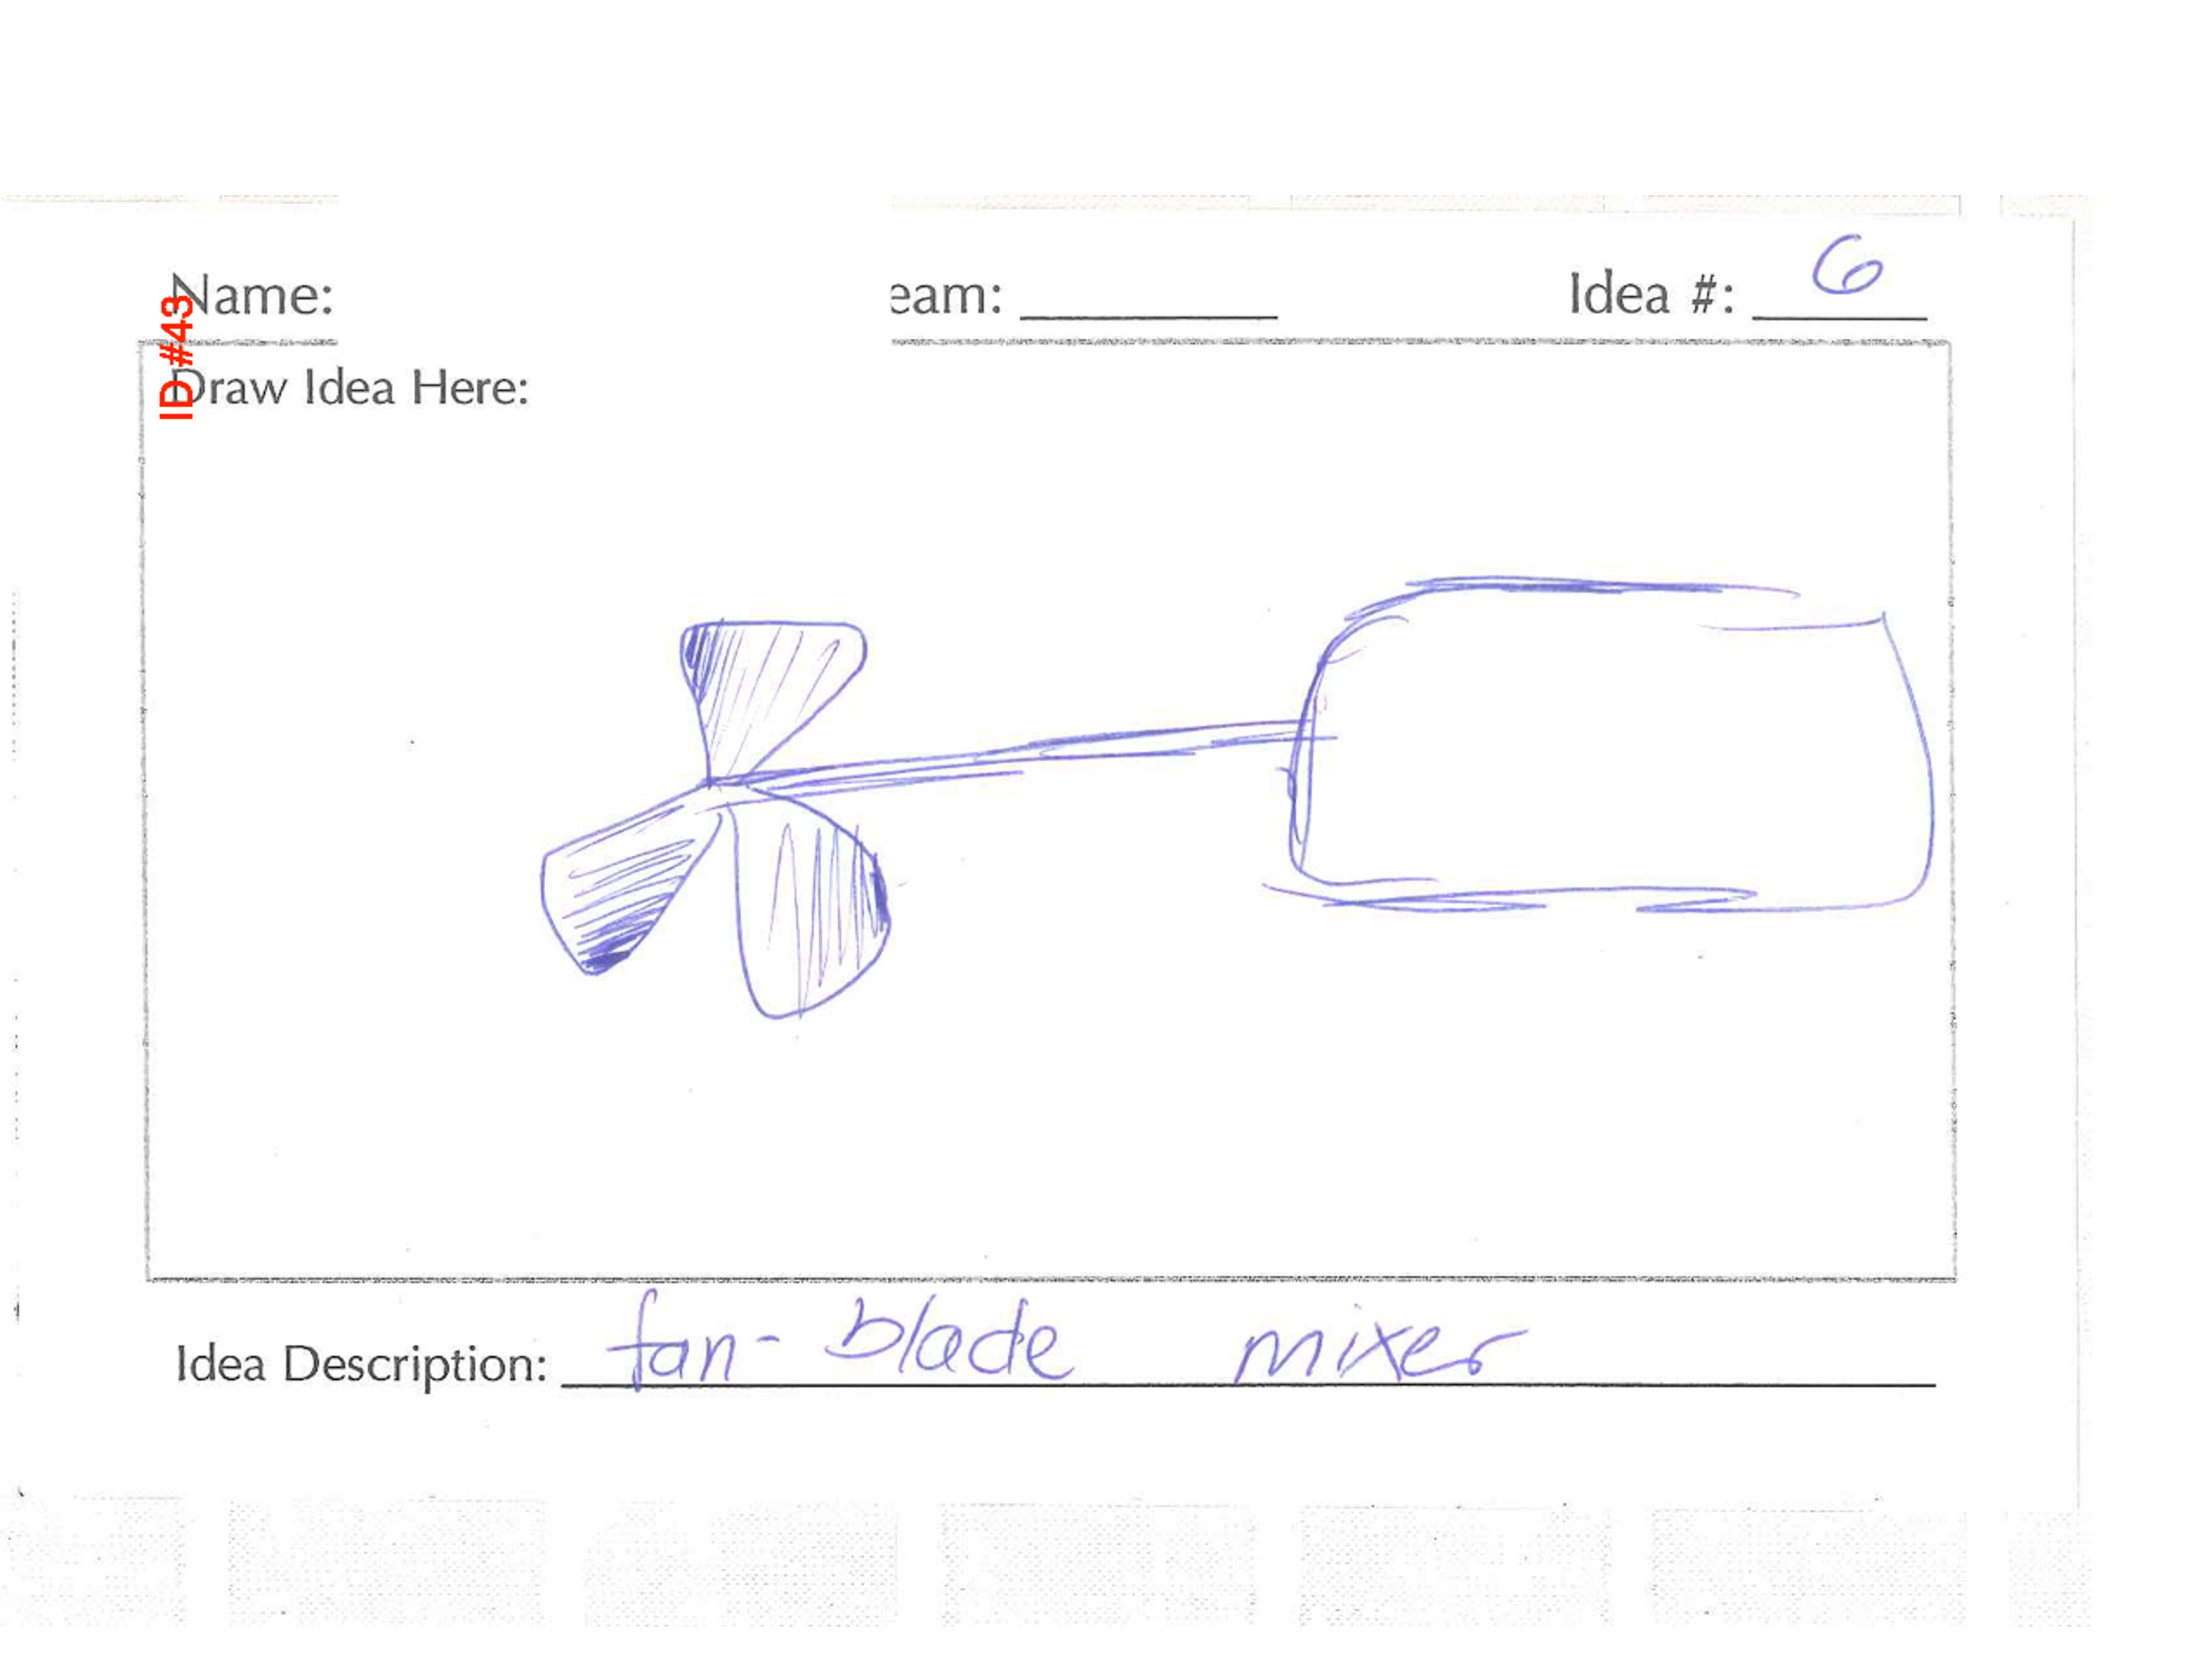 Name: eam: Idea #: 6
ID#43
Draw Idea Here:
Idea Description: fan-blade mixer